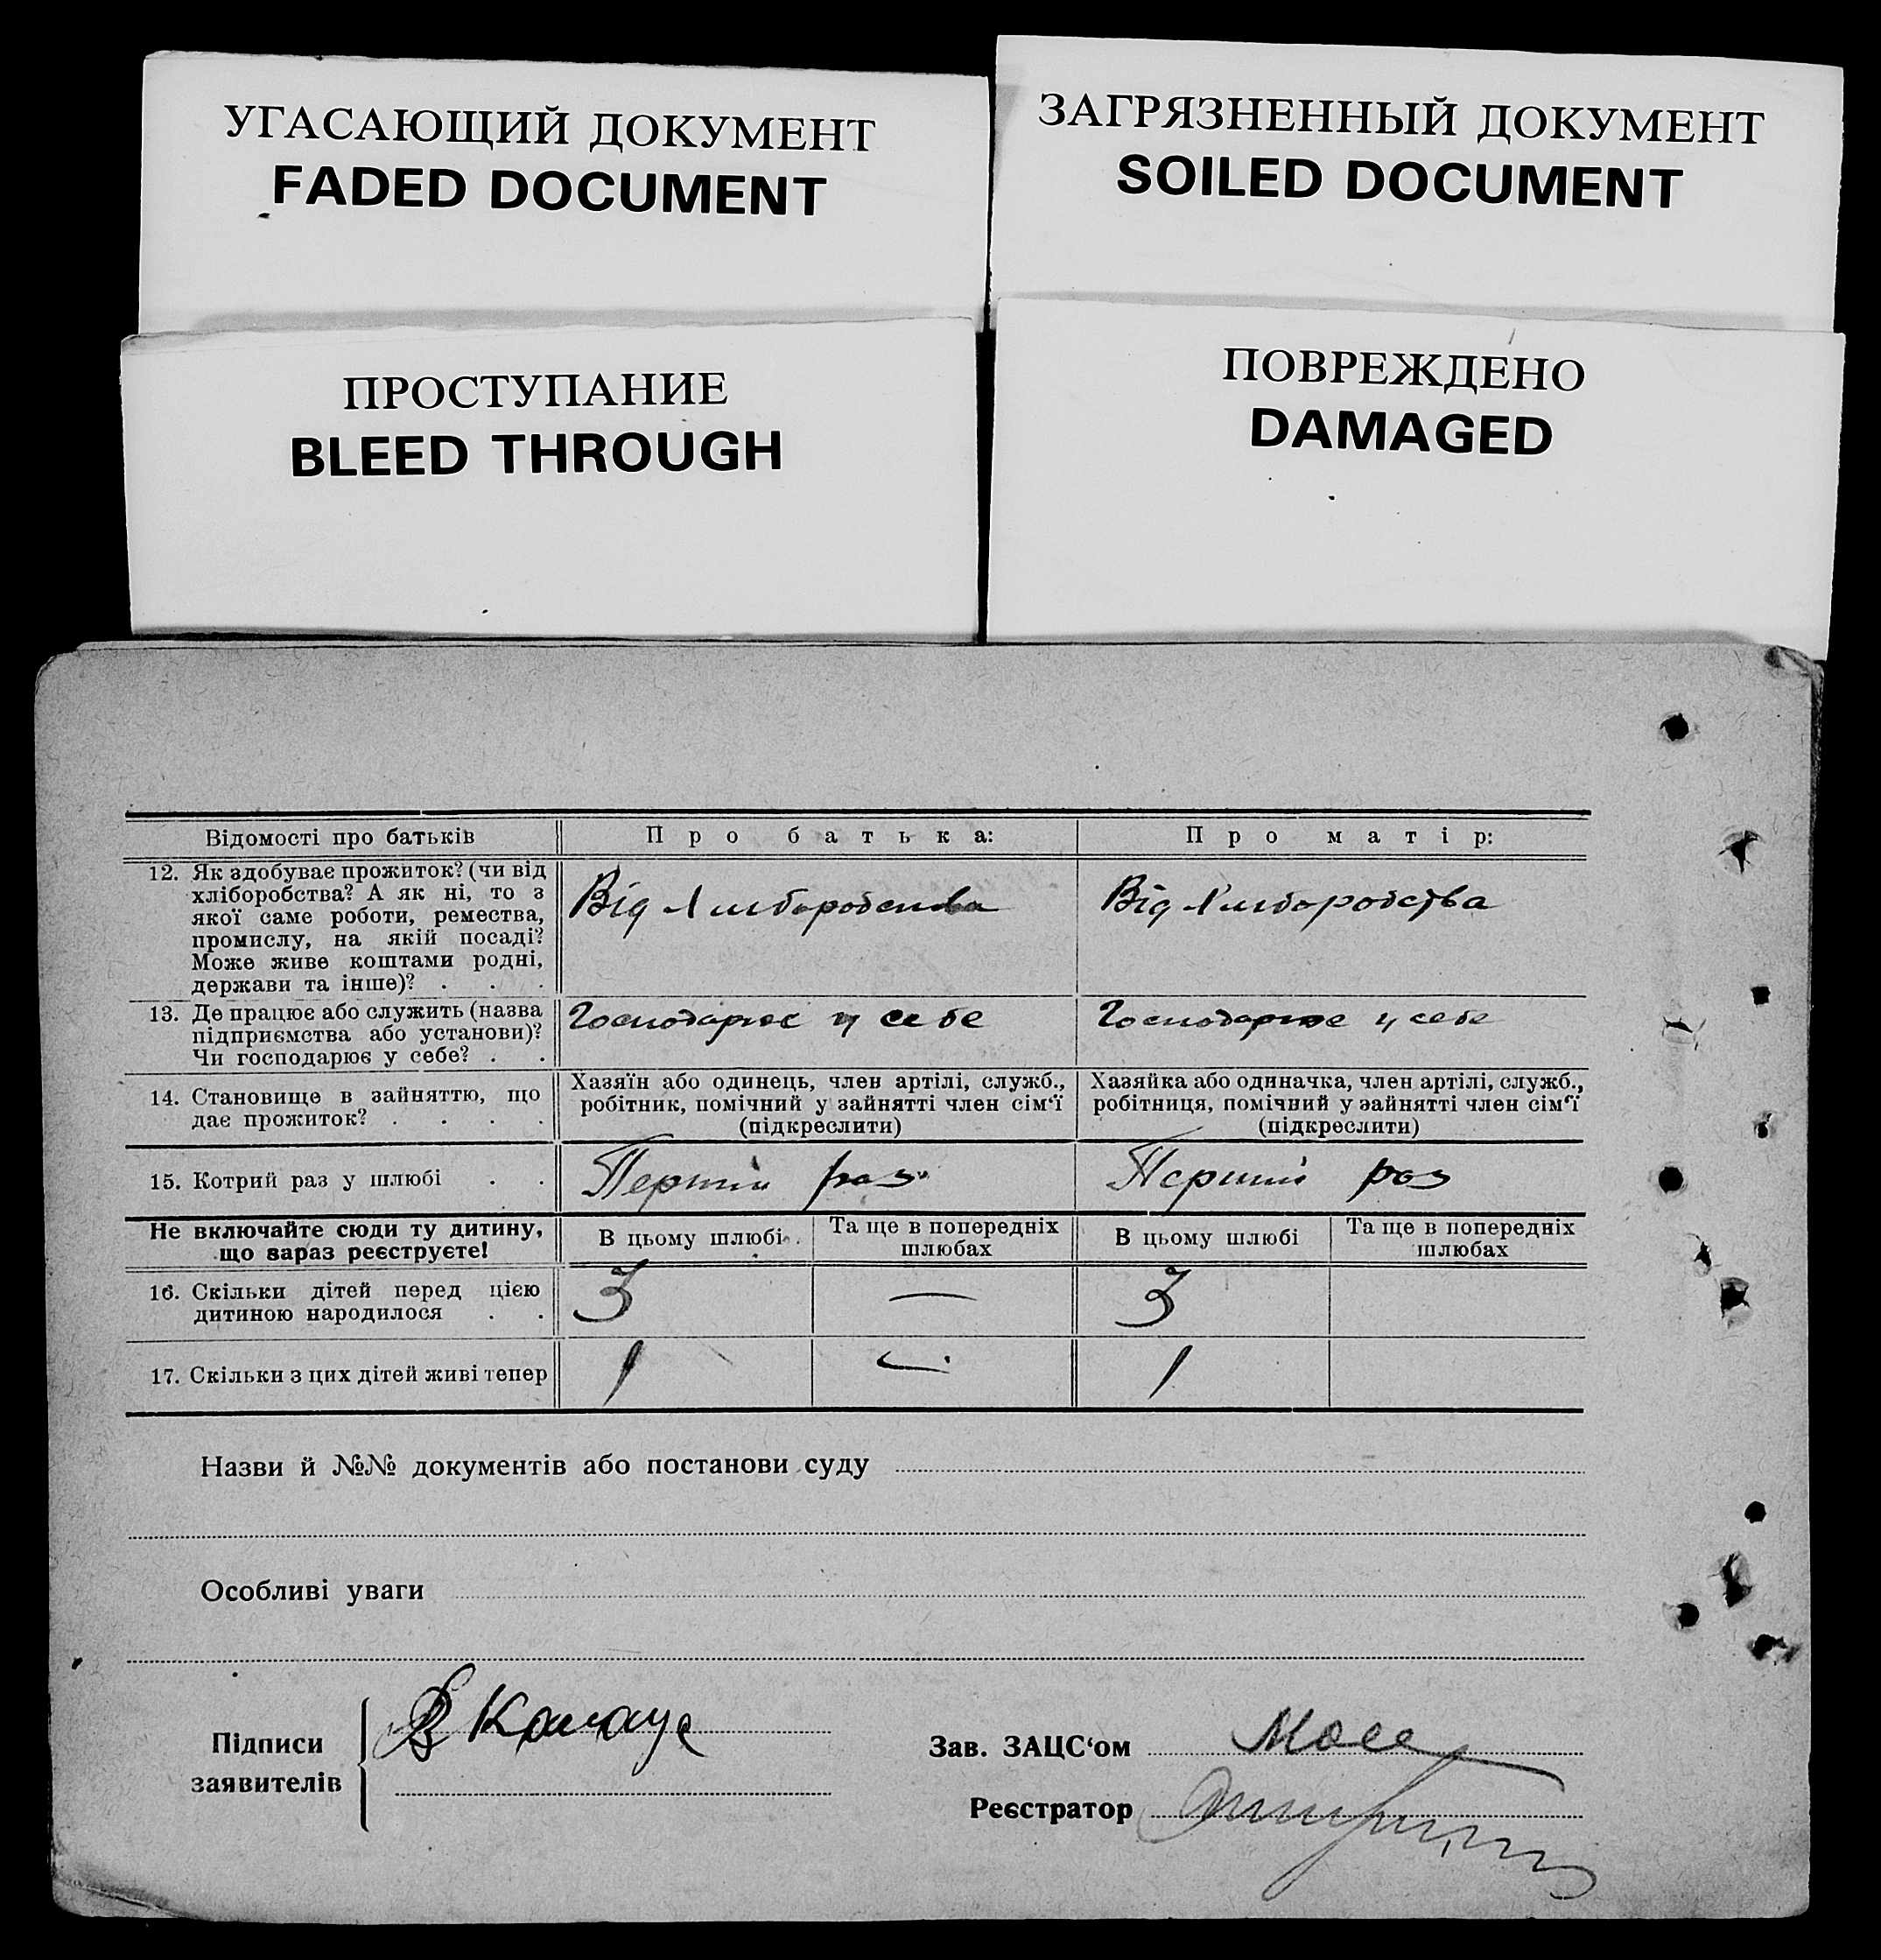 УГАСАЮЩИЙ ДОКУМЕНТ
FADED DOCUMENT
ЗАГРЯЗНЕННЫЙ ДОКУМЕНТ
SOILED DOCUMENT
ПРОСТУПАНИЕ
BLEED THROUGH
ПОВРЕЖДЕНО
DAMAGED
Відомості про батьків
Про батька:
Про матір:
12. Як здобуває прожиток? (чи від
хліборобства? А як ні, то з
якої саме роботи, ремества,
промислу, на якій посаді?
Може живе коштами родні,
держави та інше)? . . .
Від Хліборобства
Від Хліборобства
13. Де працює або служить (назва
підприємства або установи)?
Чи господарює у себе? . .
Господарює у себе
Господарює у себе
14. Становище в зайняттю, що
дає прожиток? . . . .
Хазяїн або одинець, член артілі, служб.,
робітник, помічний у зайнятті член сім‘ї
(підкреслити)
Хазяйка або одиначка, член артілі, служб.,
робітниця, помічний у зайнятті член сім‘ї
(підкреслити)
15. Котрий раз у шлюбі . .
Перший раз
Перший раз
Не включайте сюди ту дитину,
що вараз реєструєте!
В цьому шлюбі
Та ще в попередніх
шлюбах
В цьому шлюбі
Та ще в попередніх
шлюбах
16. Скільки дітей перед цією
дитиною народилося . .
3
—
3
17. Скільки з цих дітей живі тепер
1
—
1
Назви й №№ документів або постанови суду
Особливі уваги
Підписи
заявителів
В
Зав. ЗАЦС‘ом
Реєстратор